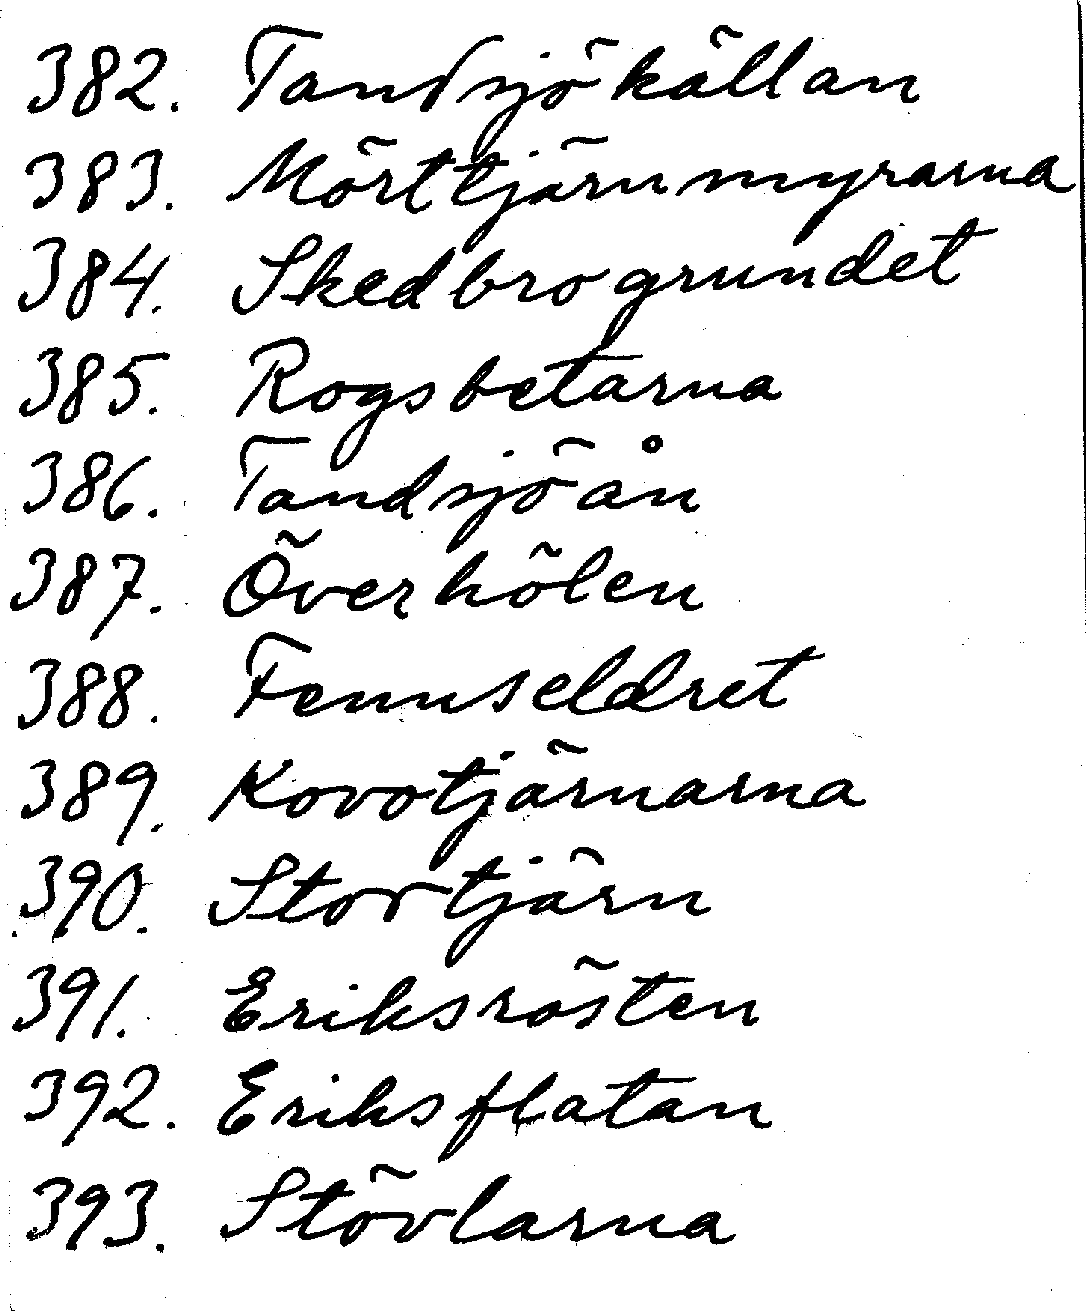 382. Tandsjökällan
383. Mörttjärnmyrarna
384. Skedbrogrundet
385. Rogsbetarna
386. Tandsjöån
387. Överhölen
388. Fennseldret
389. Kovotjärnarna
390. Stortjärn
391. Eriksrösten
392. Eriksflatan
393. Stövlarna